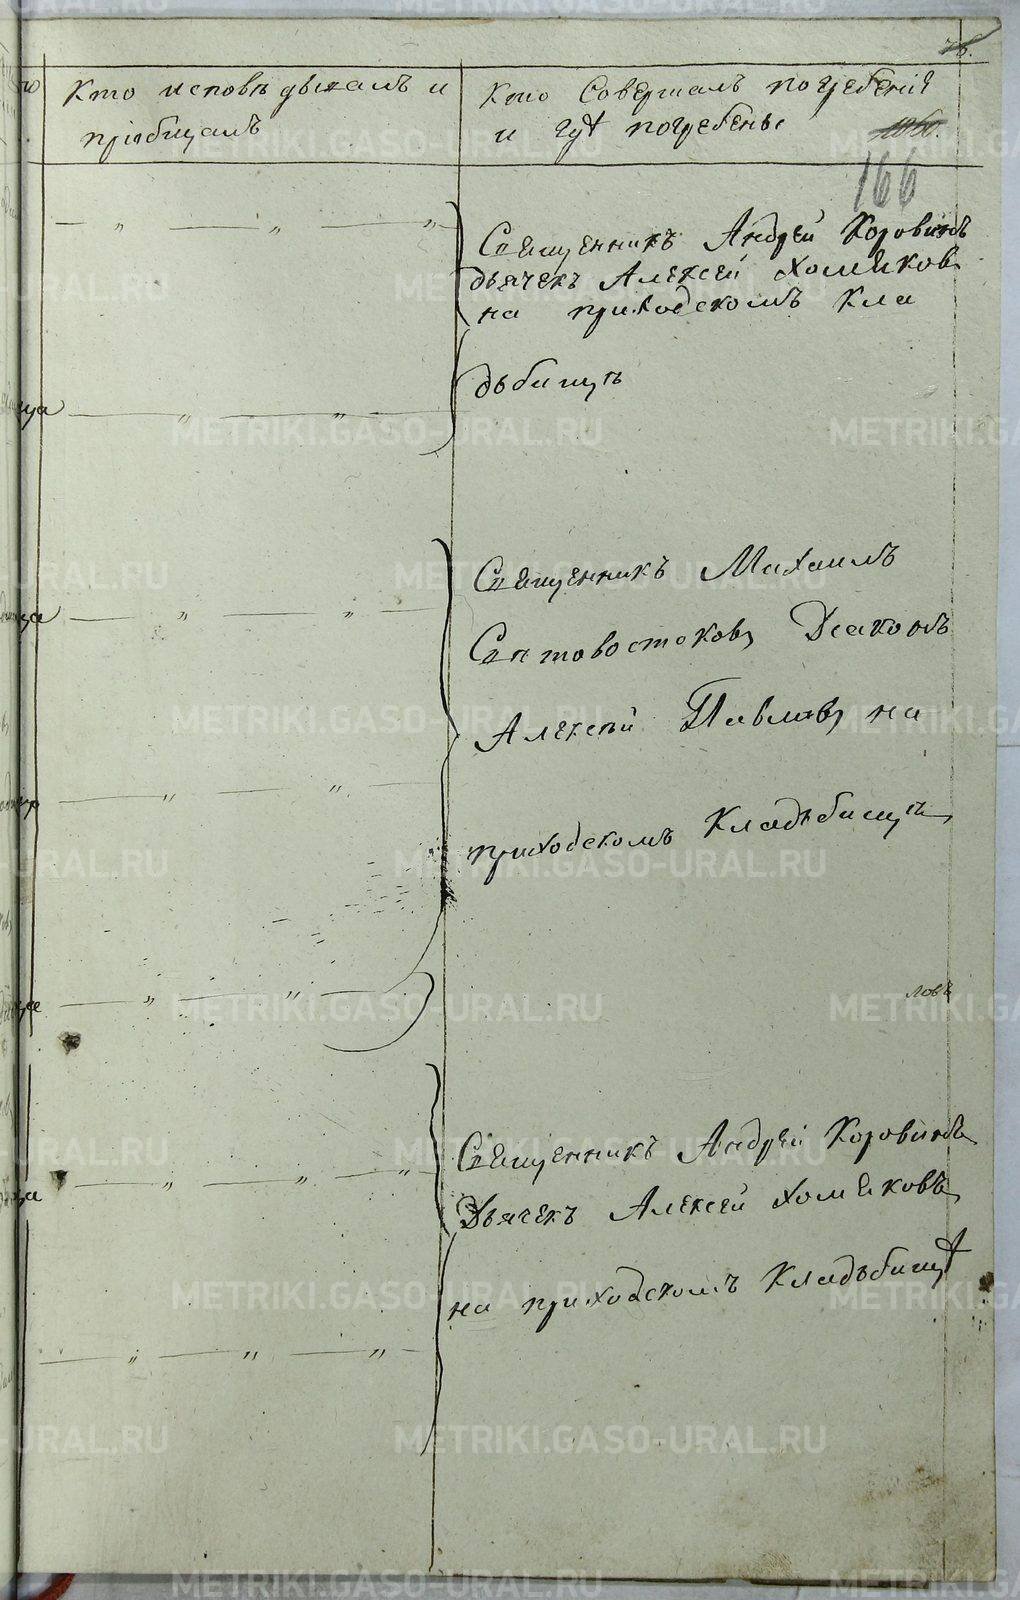 Кто исповѣдывалъ и
пріобщалъ
Кто Совершалъ погребеніе
и гдѣ погребены
166
Священникъ Андрей Коровинъ
дьячекъ Алексей Хомяковъ
на приходскомъ кла
дьбищѣ
Священникъ Михаилъ
Святовостоковъ Діаконъ
Алексѣй Павловъ на
приходскомъ Кладьбищѣ
ловъ
Священникъ Андрей Коровинъ
Дьячекъ Алексей Хомяковъ
на приходскомъ Кладьбищѣ
METRIKI.GASO-URAL.RU